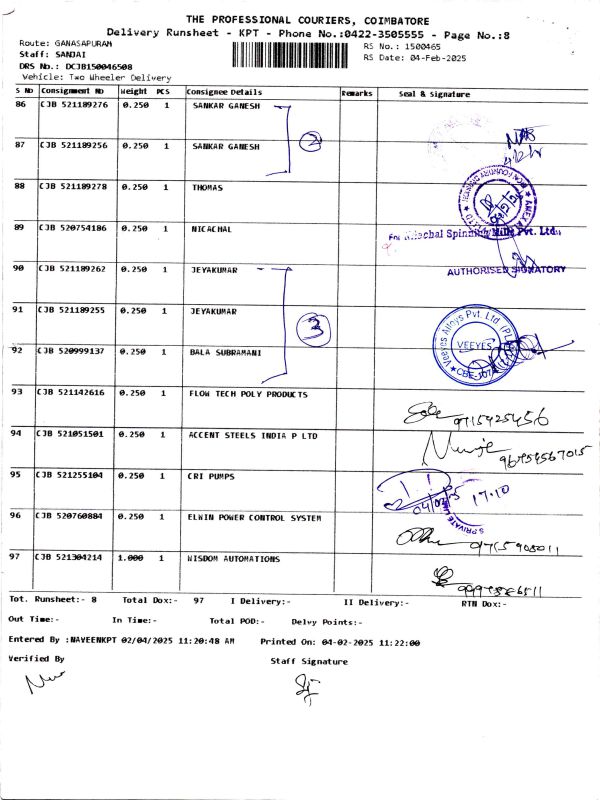 THE PROFESSIONAL COURIERS, COIMBATORE
Delivery Runsheet - KPT - Phone No.:0422-3505555 - Page No.:8
Route: GANASAPURAM
RS No.: 1500465
Staff: SANJAI
RS Date: 04-Feb-2025
DRS No.: DCJB150046508
Vehicle: Two Wheeler Delivery
S No Consignment No Weight PCS Consignee Details Remarks Seal & Signature
86 CJB 521189276 0.250 1 SANKAR GANESH
2
87 CJB 521189256 0.250 1 SANKAR GANESH
88 CJB 521189278 0.250 1 THOMAS
89 CJB 520754186 0.250 1 NICACHAL
Spinning Mills Pvt. Ltd.
90 CJB 521189262 0.250 1 JEYAKUMAR
AUTHORISED SIGNATORY
91 CJB 521189255 0.250 1 JEYAKUMAR
3
Veeyes Alloys Pvt. Ltd
VEEYES
92 CJB 520999137 0.250 1 BALA SUBRAMANI
93 CJB 521142616 0.250 1 FLOW TECH POLY PRODUCTS
9715925456
94 CJB 521051501 0.250 1 ACCENT STEELS INDIA P LTD
95 CJB 521255104 0.250 1 CRI PUMPS
17.10
96 CJB 520760884 0.250 1 ELWIN POWER CONTROL SYSTEM
97 CJB 521304214 1.000 1 WISDOM AUTOMATIONS
Tot. Runsheet:- 8 Total Dox:- 97 I Delivery:- II Delivery:- RTN Dox:-
Out Time:- In Time:- Total POD:- Delvy Points:-
Entered By :NAVEENKPT 02/04/2025 11:20:48 AM Printed On: 04-02-2025 11:22:00
Verified By Staff Signature